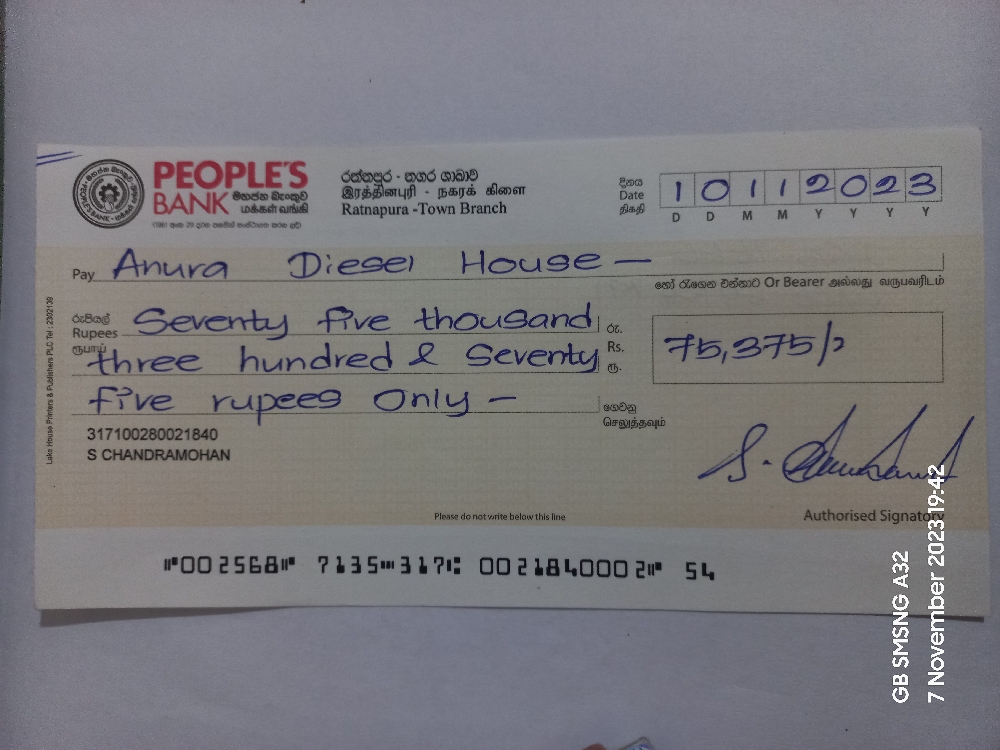 PEOPLE'S
BANK මහජන බැංකුව
மக்கள் வங்கி
රත්නපුර - නගර ශාඛාව
இரத்தினபுரி - நகரக் கிளை
Ratnapura -Town Branch
දිනය
Date
திகதி
1 0 1 1 2 0 2 3
D D M M Y Y Y Y
Pay Anura Diesel House —
හෝ රැගෙන එන්නාට Or Bearer அல்லது வருபவரிடம்
රුපියල්
Rupees
ரூபாய்
Seventy five thousand
three hundred & Seventy
five rupees only —
රු.
Rs.
ரூ.
75,375/=
ගෙවනු
செலுத்தவும்
317100280021840
S CHANDRAMOHAN
Lake House Printers & Publishers PLC Tel : 2302139
Please do not write below this line
Authorised Signatory
⑈002568⑈ 7135⑉317⑆ 0021840002⑈ 54
GB SMSNG A32
7 November 2023 19:42